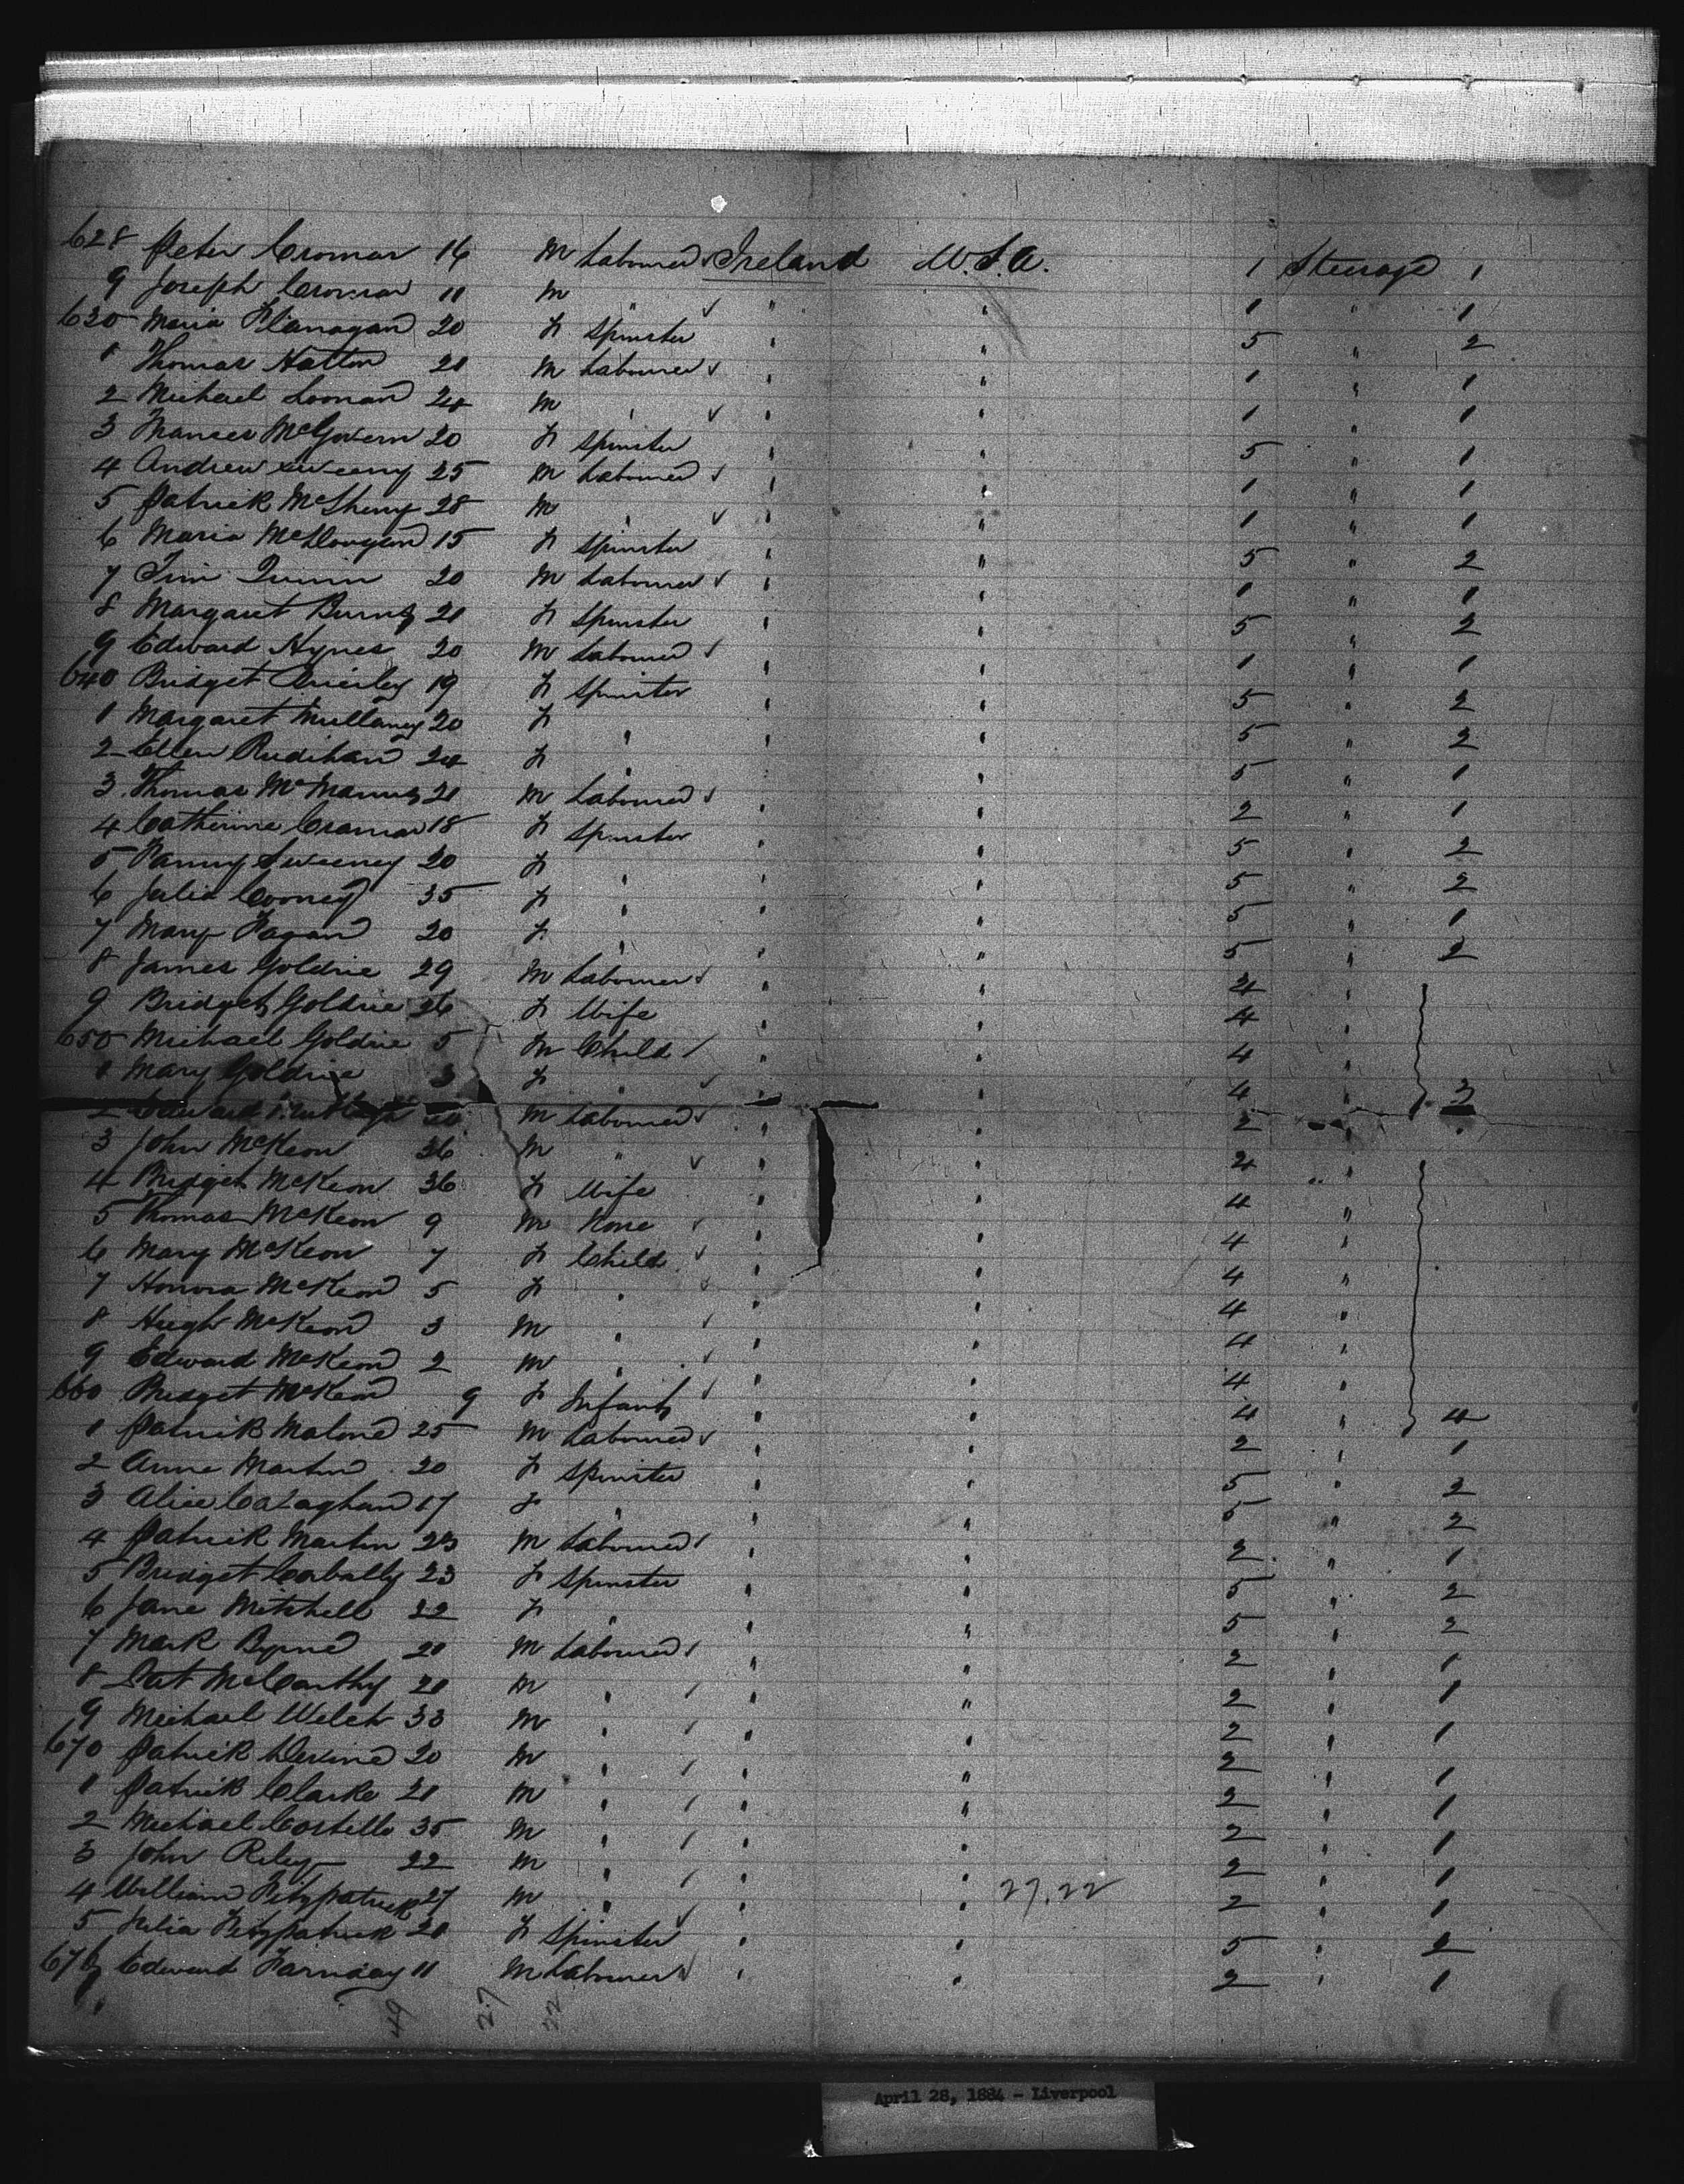 628 Peter Cromar 16 M Labourer Ireland U.S.A. 1 Steerage 1
9 Joseph Cromar 11 M " " " 1 " 1
630 Maria Flanagan 20 F Spinster " " 5 " 2
1 Thomas Hatton 21 M Labourer " " 1 " 1
2 Michael Loonan 24 M " " " 1 " 1
3 Frances McGovern 20 F Spinster " " 5 " 1
4 Andrew Sweeny 25 M Labourer " " 1 " 1
5 Patrick McSherry 28 M " " " 1 " 1
6 Maria 15 F Spinster " " 5 " 2
7 Tim Quinn 20 M Labourer " " 1 " 1
8 Margaret Burns 21 F Spinster " " 5 " 2
9 Edward Hynes 20 M Labourer " " 1 " 1
640 Bridget 19 F Spinster " " 5 " 2
1 Margaret Mullaney 20 F " " " 5 " 2
2 Ellen Rudihan 24 F " " " 5 " 1
3 Thomas McManus 21 M Labourer " " 2 " 1
4 Catherine Cramar 18 F Spinster " " 5 " 2
5 Fanny Sweeney 20 F " " " 5 " 2
6 Julia Cooney 35 F " " " 5 " 1
7 Mary Fagan 20 F " " " 5 " 2
8 James Goldrie 29 M Labourer " " 4 "
9 Bridget Goldrie 26 F Wife " " 4 "
650 Michael Goldrie 5 M Child " " 4 "
1 Mary Goldrie 3 F " " " 4 " 3
2 Edward 20 M Labourer " " 2 "
3 John McKeon 36 M " " " 4 "
4 Bridget McKeon 36 F Wife " " 4 "
5 Thomas McKeon 9 M None " " 4 "
6 Mary McKeon 7 F Child " " 4 "
7 Honora McKeon 5 F " " " 4 "
8 Hugh McKeon 3 M " " " 4 "
9 Edward McKeon 2 M " " " 4 "
660 Bridget McKeon 9 F Infant " " 4 " 4
1 Patrick Malone 25 M Labourer " " 2 " 1
2 Anne Martin 20 F Spinster " " 5 " 2
3 Alice Calaghan 17 F " " " 5 " 2
4 Patrick Martin 23 M Labourer " " 2 " 1
5 Bridget Corbally 23 F Spinster " " 5 " 2
6 Jane Mitchell 22 F " " " 5 " 2
7 Mark Byrne 20 M Labourer " " 2 " 1
8 Pat McCarthy 21 M " " " 2 " 1
9 Michael Welch 33 M " " " 2 " 1
670 Patrick Devine 20 M " " " 2 " 1
1 Patrick Clarke 21 M " " " 2 " 1
2 Michael Costello 35 M " " " 2 " 1
3 John Riley 22 M " " " 2 " 1
4 William Fitzpatrick 27 M " " " 27.22 2 " 1
5 Julia Fitzpatrick 20 F Spinster " " 5 " 2
676 Edward Farnday 11 M Labourer " " 2 " 1
49 27 22
April 28, 1884 - Liverpool